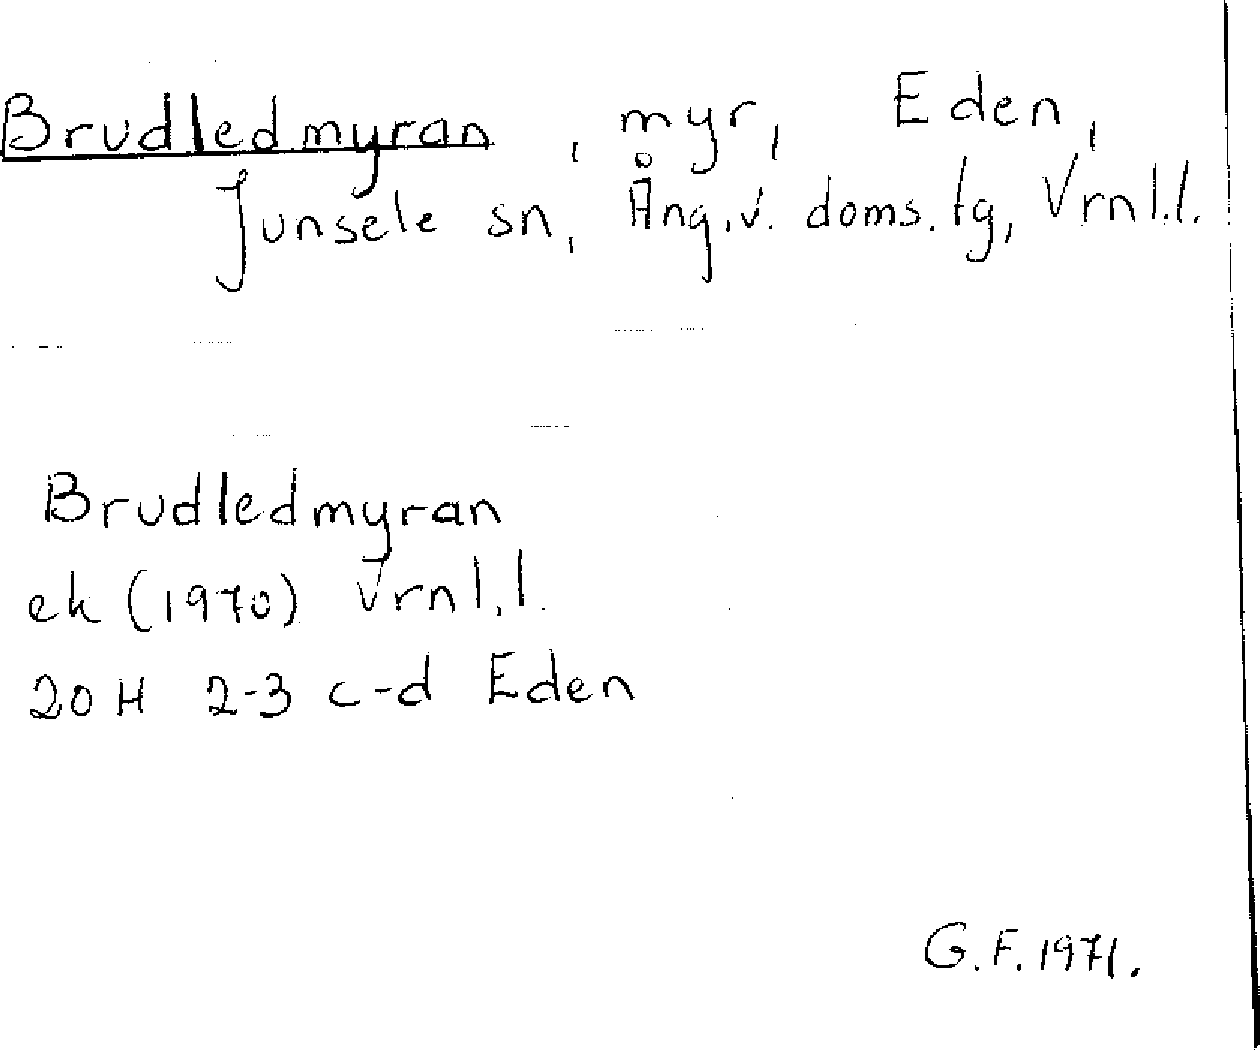 Brudledmyran, myr, Eden,
Junsele sn, Ång.v. doms.tg, Vrnl.l.
Brudledmyran
ek (1970) Vrnl.l.
20 H 2-3 c-d Eden
G.F. 1971.